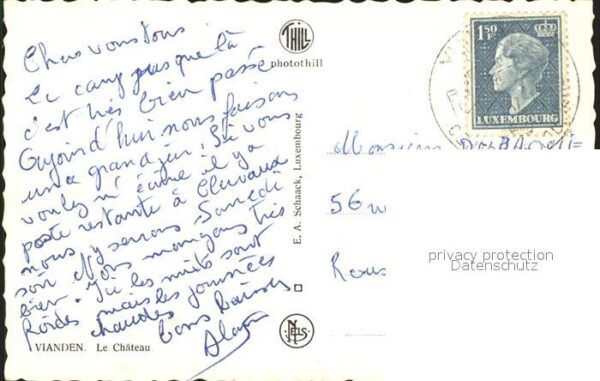 Chers vous tous
Le camp jusque là
c'est très bien passé
Aujourd'hui nous faisons
un grand jeu. Si vous
voulez m'écrire il y a
poste restante à Clervaux
nous y serons Samedi
soir. Nous mangeons très
bien. Ici les nuits sont
froides mais les journées
chaudes
bons baisers
Alain
VIANDEN. Le Château
THILL
photothill
E. A. Schaack, Luxembourg
NELS
1F50
LUXEMBOURG
Monsieur
56
privacy protection
Datenschutz